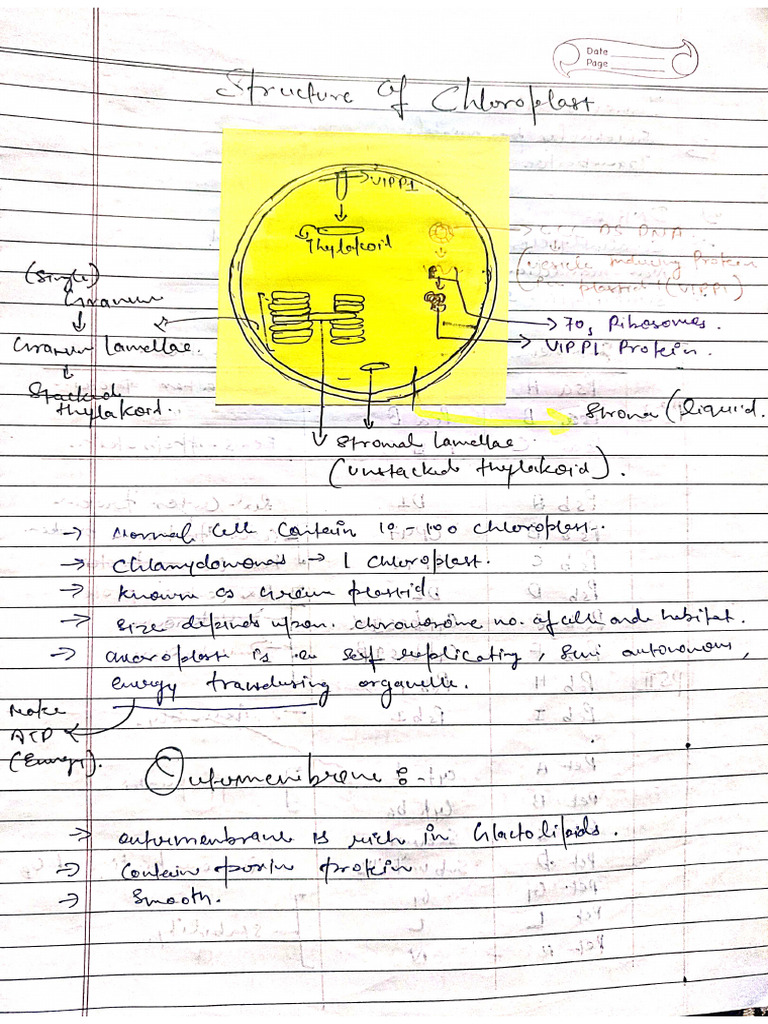 Date
Page
Structure of Chloroplast
VIPP1
Thylakoid
CCC DS DNA
(vesicle inducing Protein
plastid) (VIPP1)
(Single)
Granum
70s Ribosomes.
Granum Lamellae.
VIPP1 Protein.
Stacked
thylakoid..
Stroma (liquid.
Stromal Lamellae
(unstacked thylakoid).
→ Normal Cell Contain 10-100 chloroplast.
→ Chlamydomonas → 1 chloroplast.
→ Known as Green plastid.
→ Size depends upon. chromosome no. of cell and habitat.
→ Chloroplast is a self replicating, Semi autonomous,
energy transducing organelle.
Make
ATP
(Energy).
Outermembrane :-
→ outermembrane is rich in Glactolipids.
→ Contain porin protein
→ Smooth.